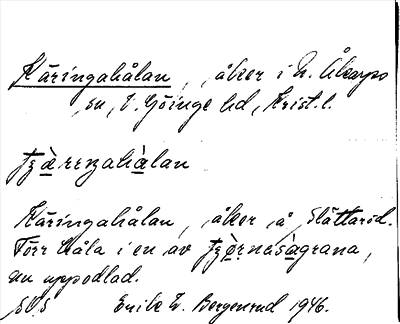 Käringahålan, åker i N. Åkarps
sn, V. Göinge hd, Krist. l.
tʒæ̀rrngahàlan
Käringahålan, åker å Slättaröd.
Torr håla i en av tʒæ̀rnesàgrana,
nu uppodlad.
Erik W. Bergenrud 1946.